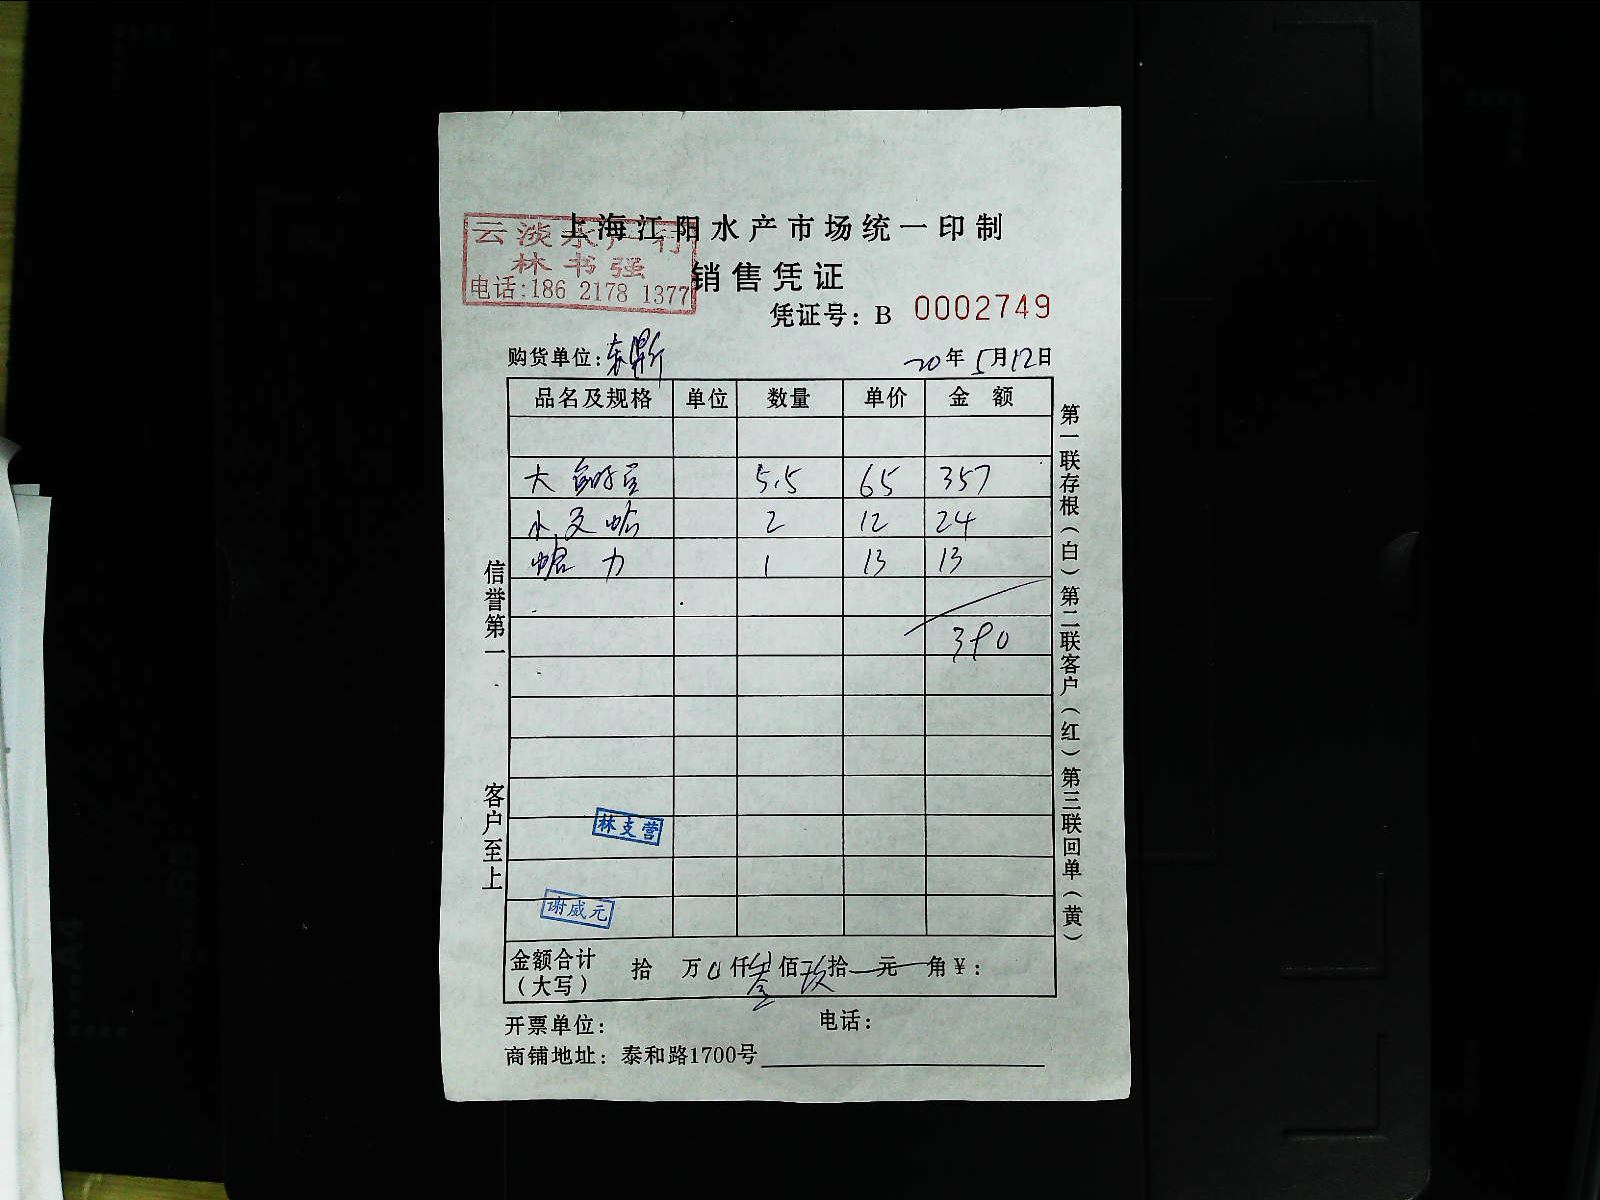 上海江阳水产市场统一印制
云淡水产行
林书强
电话:186 2178 1377
销售凭证
凭证号: B 0002749
购货单位:
20年5月12日
品名及规格 单位 数量 单价 金额
大 5.5 65 357
2 12 24
蛤力 1 13 13
390
林支营
谢威元
金额合计(大写) 拾 万 0 仟 叁 佰 玖 拾 元 角 ¥:
开票单位: 电话:
商铺地址: 泰和路1700号
信誉第一 客户至上
第一联存根(白)第二联客户(红)第三联回单(黄)